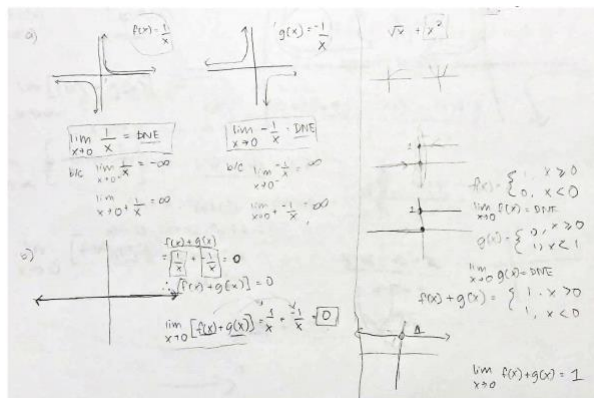 a)
f(x) = 1/x
g(x) = -1/x
lim x→0 1/x = DNE
b/c lim x→0⁻ 1/x = -∞
lim x→0⁺ 1/x = ∞
lim x→0 -1/x = DNE
b/c lim x→0⁻ -1/x = ∞
b)
f(x) + g(x)
= 1/x + -1/x = 0
∴ [f(x) + g(x)] = 0
lim x→0 [f(x) + g(x)] = 1/x + -1/x = 0
√x + x²
1
f(x) = { 1, x ≥ 0
0, x < 0
lim x→0 f(x) = DNE
1
g(x) = { 0, x ≥ 0
1, x < 1
lim x→0 g(x) = DNE
f(x) + g(x) = { 1, x > 0
1, x < 0
lim x→0 f(x) + g(x) = 1